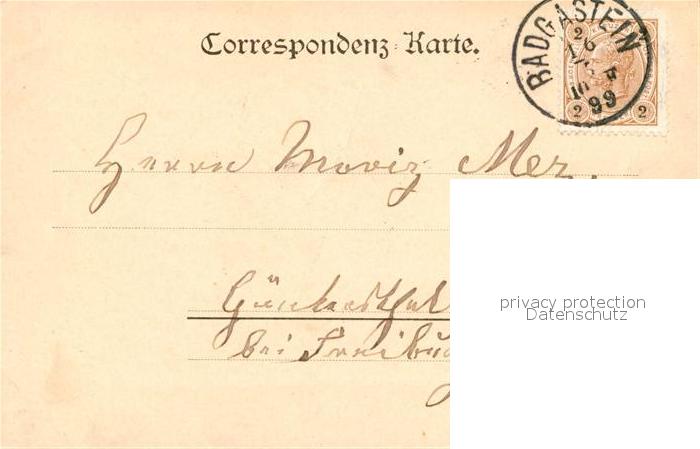 Correspondenz-Karte.
BADGASTEIN
2
16
99
2 2
Herrn Moriz Mez.
bei Freiburg
privacy protection
Datenschutz